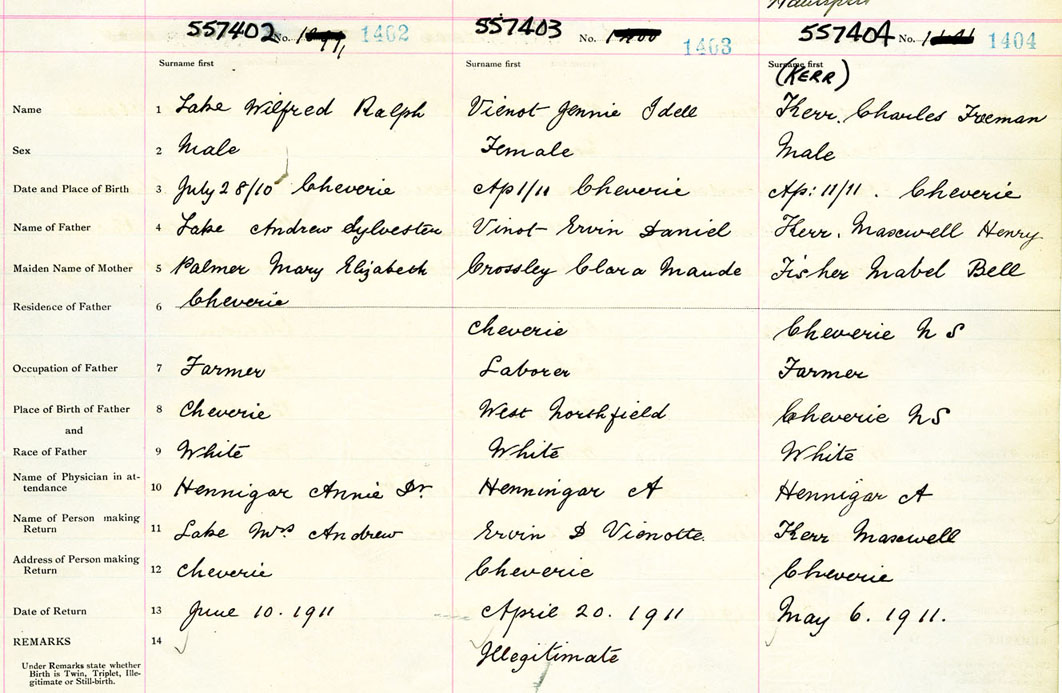 557402 No. 1402 557403 No. 1403 557404 No. 1404
Surname first Surname first Surname first
(KERR)
Name 1 Lake Wilfred Ralph Vienot Jennie Idell Kerr. Charles Freeman
Sex 2 Male Female Male
Date and Place of Birth 3 July 28/10 Cheverie Ap 1/11 Cheverie Ap: 11/11. Cheverie
Name of Father 4 Lake Andrew Sylvester Vinot Ervin Daniel Kerr. Maxwell Henry
Maiden Name of Mother 5 Palmer Mary Elizabeth Crossley Clara Maude Fisher Mabel Bell
Residence of Father 6 Cheverie Cheverie Cheverie N S
Occupation of Father 7 Farmer Laborer Farmer
Place of Birth of Father 8 Cheverie West Northfield Cheverie NS
and
Race of Father 9 White White White
Name of Physician in at-
tendance 10 Hennigar Annie Dr. Henningar A Hennigar A
Name of Person making
Return 11 Lake Mrs Andrew Ervin D Vienotte Kerr Maxwell
Address of Person making
Return 12 Cheverie Cheverie Cheverie
Date of Return 13 June 10. 1911 April 20. 1911 May 6. 1911.
REMARKS 14 Illegitimate
Under Remarks state whether
Birth is Twin, Triplet, Ille-
gitimate or Still-birth.